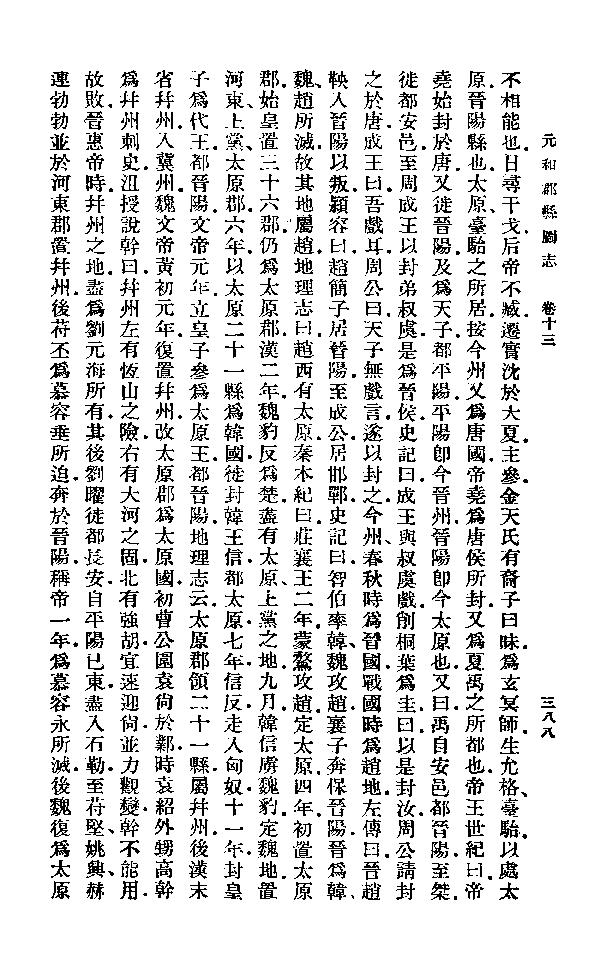 元和郡縣圖志　卷十三　三八八
不相能也日尋干戈后帝不臧遷實沈於大夏主參金天氏有裔子曰昧爲玄冥師生允格、臺駘以處太
原晉陽縣也太原臺駘之所居按今州又爲唐國帝堯爲唐侯所封又爲夏禹之所都也帝王世紀曰帝
堯始封於唐又徙晉陽及爲天子都平陽平陽卽今晉州晉陽卽今太原也又曰禹自安邑都晉陽至桀
徙都安邑至周成王以封弟叔虞是爲晉侯史記曰成王與叔虞戲削桐葉爲圭曰以是封汝周公請封
之於唐成王曰吾戲耳周公曰天子無戲言遂以封之今州春秋時爲晉國戰國時爲趙地左傳曰晉趙
鞅入晉陽以叛潁容曰趙簡子居晉陽至成公居邯鄲史記曰智伯率韓、魏攻趙襄子奔保晉陽晉爲韓、
魏、趙所滅故其地屬趙地理志曰趙西有太原秦本紀曰莊襄王二年蒙驁攻趙定太原四年初置太原
郡始皇置三十六郡仍爲太原郡漢二年魏豹反爲楚盡有太原、上黨之地九月韓信虜魏豹定魏地置
河東、上黨、太原郡六年以太原二十一縣爲韓國徙封韓王信都太原七年信反走入匈奴十一年封皇
子爲代王都晉陽文帝元年立皇子參爲太原王都晉陽地理志云太原郡領二十一縣屬幷州後漢末
省幷州入冀州魏文帝黃初元年復置幷州改太原郡爲太原國初曹公圍袁尙於鄴時袁紹外甥高幹
爲幷州刺史沮授說幹曰幷州左有恆山之險右有大河之固北有強胡宜速迎尙並力觀變幹不能用
故敗晉惠帝時幷州之地盡爲劉元海所有其後劉曜徙都長安自平陽已東盡入石勒至苻堅、姚興、赫
連勃勃並於河東郡置幷州後苻丕爲慕容垂所迫奔於晉陽稱帝一年爲慕容永所滅後魏復爲太原